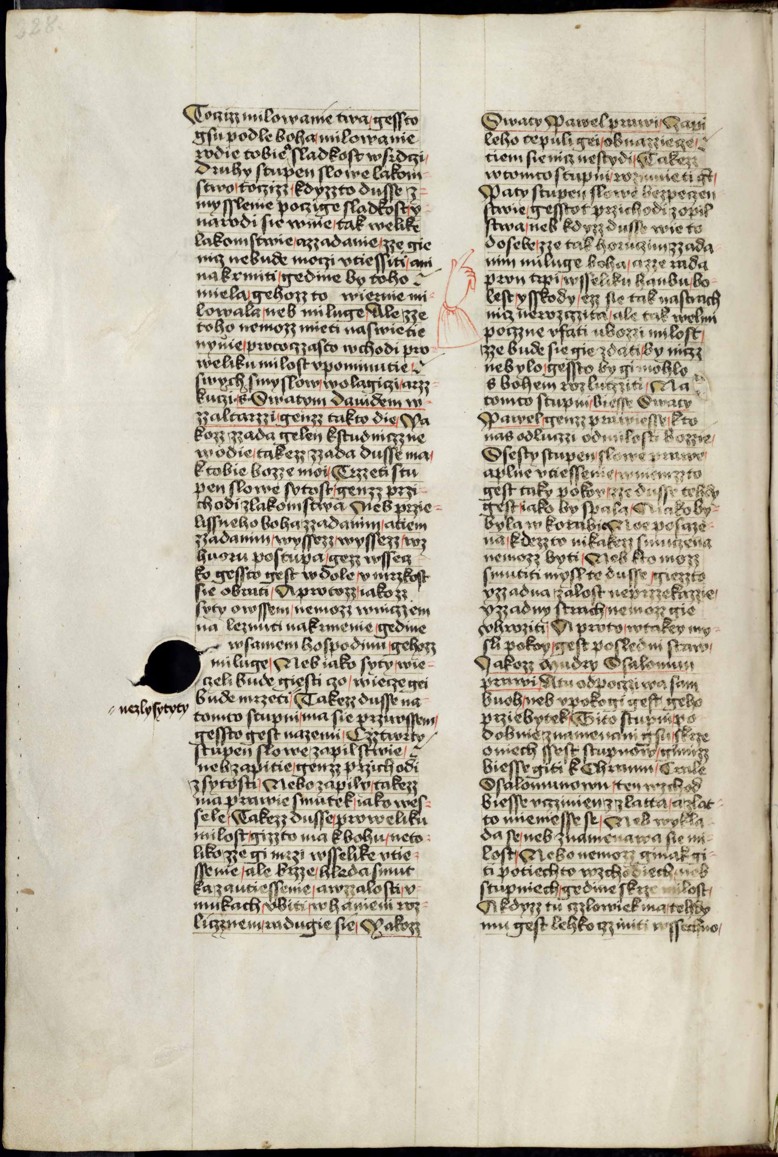 328.
Tocziz milowanie twa gessto
gsu podle boha milowanie
rodie tobie sladkost w srdczi
Druhy stupen slowe lakom
stwo toczizz kdyzzto dusse z
myssleme poczige sladkost y
narodi sie w nie tak welike
lakomstwie azzadanie zze gie
nicz nebude moczi vtiessiti ani
nakrmiti gedine by toho
miela gehozz to wiernie mi
lowala neb miluge Ale zze
toho nemozz mieti na swietie
nynie proczzasto wchodi pro
weliku milost vpominutie
swych smyslow wolagiczi arz
kuczi s Swatym dauidem w
zzaltarzi genzz takto die Ya
kozz zzada gelen k studniczne
wodie takezz zzada dusse ma
k tobie bozze moi Trzeti stu
pen slowe sytost genzz przi
chodi z lakomstwa Neb przie
lissneho boha zzadanim a tiem
zzadanim wyssezz wyssezz wz
huoru postupa gezz wssecz
ko gessto gest w dole v mrzkost
sie obrati A protozz iakozz
syty owssem nemozz w niczzem
na lezniuti nakrmenie gedine
w samem hospodinu gehozz
miluge Neb iako syty wie
czeli bude giesti czo wiecze gei
bude mrzeti Takezz dusse na
tomto stupni ma sie przi wssem
gessto gest na zemi Cztwrty
stupen slowe zapilstwie
neb zapitie genzz przichodi
z sytosti Nebo zapily takezz
ma prawie smutek iako wes
sele Takezz dusse pro weliku
milost gizzto ma k bohu neto
liko zze gi mrzi wsselike vtie
ssenie ale krzze hleda smut
ka za utiessenie a w zzalosti v
mukach v biti w hanieni roz
licznem raduge sie Yakozz
nezlysytyty
Swaty Pawel prawi Zapi
leho tepuli gei obnazziege
tiem sie nicz nestydi Takezz
w tomto stupni rozumieti gt
Paty stupen slowe bezpeczen
stwie gesstot przichodi z opil
stwa neb kdyzz dusse wie to
do sebe zze tak horuczim zzada
nim miluge boha a zze rada
pron trpi wsseliku hanbu bo
lest y sskody ezz sie tak na strach
nicz nerozczita ale tak welmi
poczne vfati v bozzi milost
zze bude sie gie zdati by nicz
nebylo gessto by gi mohlo
s bohem rozlucziti Na
tomto stupni biesse Swaty
Pawel genzz prawiesse kto
nas odluczi od milosti bozzie
Ssesty stupen slowe prawe
a plne vtiessenie w niemzzto
gest taky pokoy zze dusse tehdy
gest iako by spala A iako by
byla w korabie Noe posaze
na kdezzto nikakezz smucena
nemozz byti Neb kto mozz
smutiti mysl te dusse giezzto
y zzadna zalost neprzekazzie
y zzadny strach nemozz gie
vhroziti A proto w takey my
sli pokoy gest posledni staw
Jakozz mudry Ssalomun
prawi Atu odpocziwa sam
buoh neb v pokogi gest geho
przie bytek Tito stupni po
dobnie znamenani gsu skrze
oniech ssest stupnow gimizz
biesse giti k Chramu Crale
Ssalomunowu ten wzchod
biesse vczinien z zlatta a zlat
to miemesse se Neb wykla
da se neb znamenawa sie mi
lost Nebo nemozz ginak gi
ti po tiechto wzchodiech neb
stupniech gedine skrze milost
A kdyzz tu czlowiek ma tehdy
mu gest lehko cziniti wsseczko